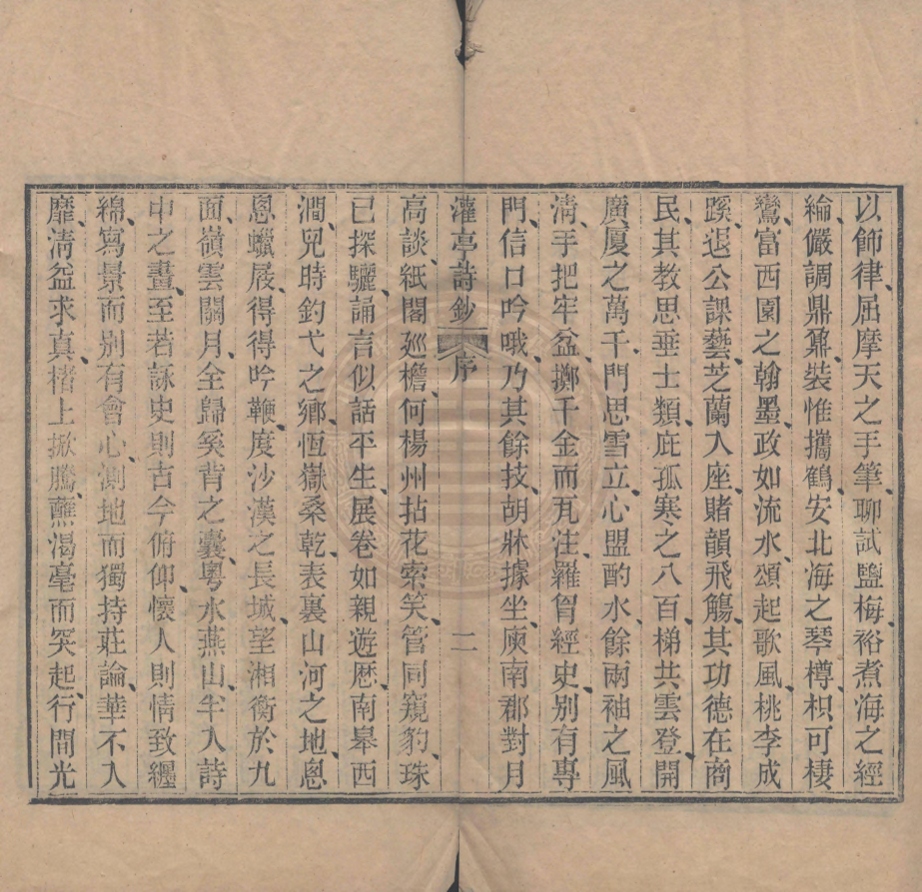 以飾律、屈摩天之手筆、聊試鹽梅、裕煮海之經
綸、儼調鼎鼐、裝惟攜鶴、安北海之琴樽、枳可棲
鸞、富西園之翰墨、政如流水、頌起歌風、桃李成
蹊、退公課藝、芝蘭入座、賭韻飛觴、其功德在商
民、其教思垂士類、庇孤寒之八百、梯共雲登、開
廣厦之萬千、門思雪立、心盟酌水、餘兩袖之風
清、手把牢盆、擲千金而瓦注、羅胷經史、別有專
門、信口吟哦、乃其餘技、胡牀據坐、庾南郡對月
灌亭詩鈔 序 二
高談、紙閣廵檐、何楊州拈花索笑、管同窺豹、珠
已探驪、誦言似話平生、展卷如親遊厯、南皋西
澗、兒時釣弋之鄉、恆嶽桑乾、表裏山河之地、悤
悤蠟屐、得得吟鞭、度沙漠之長城、望湘衡於九
面、嶺雲關月、全歸奚背之囊、粤水燕山、半入詩
中之畫、至若詠史則古今俯仰、懷人則情致纒
綿、寫景而別有會心、測地而獨持莊論、華不入
靡、清益求真、楮上掀騰、蘸渴毫而突起、行間光